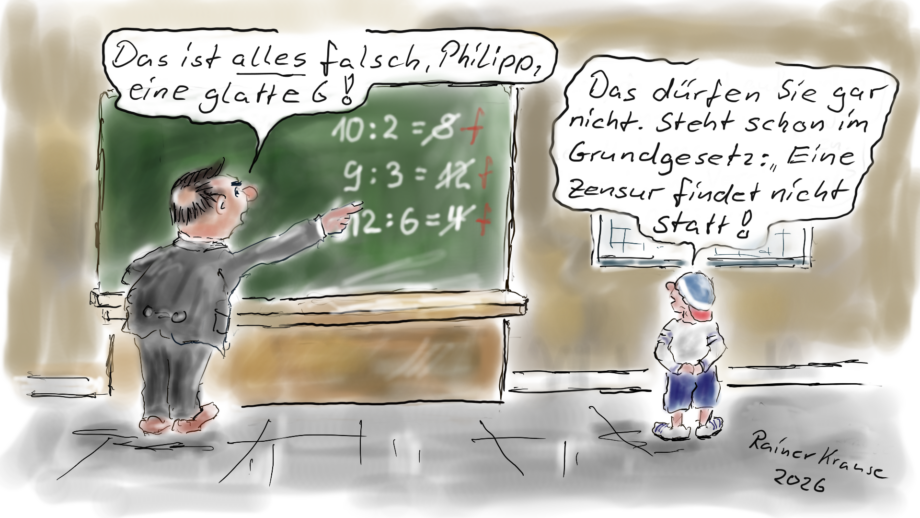 Das ist alles falsch, Philipp,
eine glatte 6!
10:2 = 8 f
9:3 = 12 f
12:6 = 4 f
Das dürfen Sie gar
nicht. Steht schon im
Grundgesetz: „Eine
Zensur findet nicht
statt!
Rainer Krause
2026